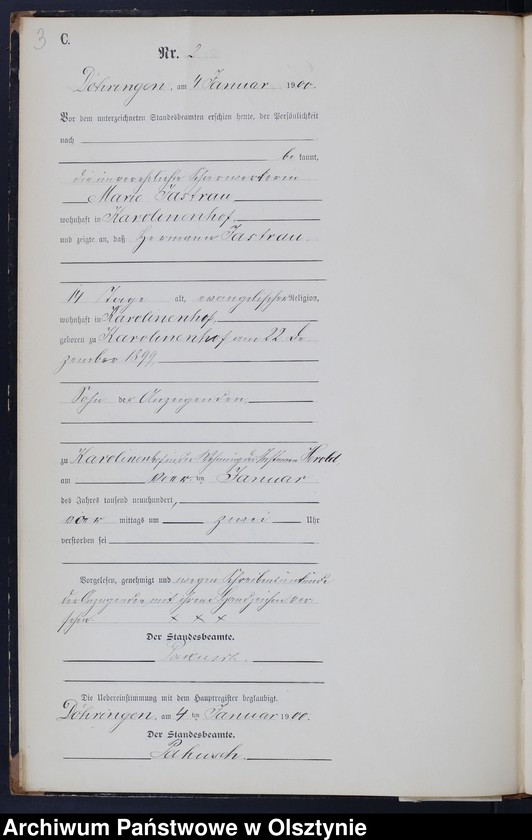 3
C.
Nr. 2
Döhringen, am 4 Januar 1900.
Vor dem unterzeichneten Standesbeamten erschien heute, der Persönlichkeit
nach
be kannt,
die unverehelichte Scharwerkerin
Marie Jastrau
wohnhaft in Karolinenhof,
und zeigte an, daß Hermann Jastrau
14 Tage alt, evangelischer Religion,
wohnhaft in Karolinenhof,
geboren zu Karolinenhof am 22 De-
zember 1899,
Sohn der Anzeigenden,
zu Karolinenhof in der Wohnung des Herold,
am vier ten Januar
des Jahres tausend neunhundert,
vor mittags um zwei Uhr
verstorben sei
Vorgelesen, genehmigt und wegen Schreibensunkunde
der Anzeigenden mit ihrem Handzeichen ver-
sehen × × ×
Der Standesbeamte.
Pakusch.
Die Uebereinstimmung mit dem Hauptregister beglaubigt.
Döhringen, am 4 ten Januar 1900.
Der Standesbeamte.
Pakusch.
Archiwum Państwowe w Olsztynie